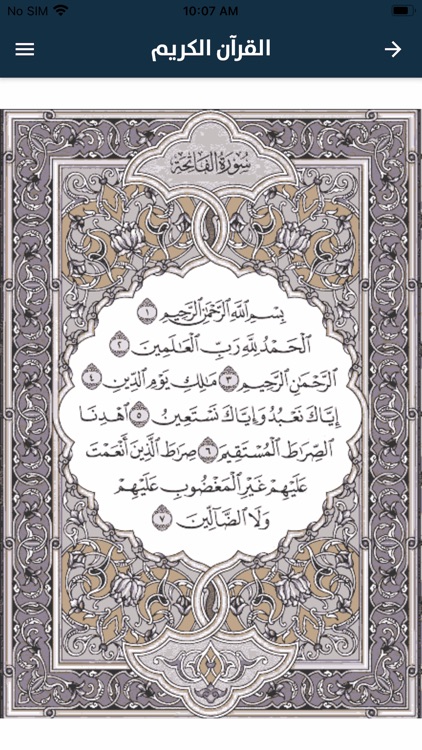 No SIM 10:07 AM
القرآن الكريم
سُورَةُ الفَاتِحَةِ
بِسْمِ ٱللَّهِ ٱلرَّحْمَٰنِ ٱلرَّحِيمِ ١
ٱلْحَمْدُ لِلَّهِ رَبِّ ٱلْعَٰلَمِينَ ٢
ٱلرَّحْمَٰنِ ٱلرَّحِيمِ ٣ مَٰلِكِ يَوْمِ ٱلدِّينِ ٤
إِيَّاكَ نَعْبُدُ وَإِيَّاكَ نَسْتَعِينُ ٥ ٱهْدِنَا
ٱلصِّرَٰطَ ٱلْمُسْتَقِيمَ ٦ صِرَٰطَ ٱلَّذِينَ أَنْعَمْتَ
عَلَيْهِمْ غَيْرِ ٱلْمَغْضُوبِ عَلَيْهِمْ
وَلَا ٱلضَّآلِّينَ ٧